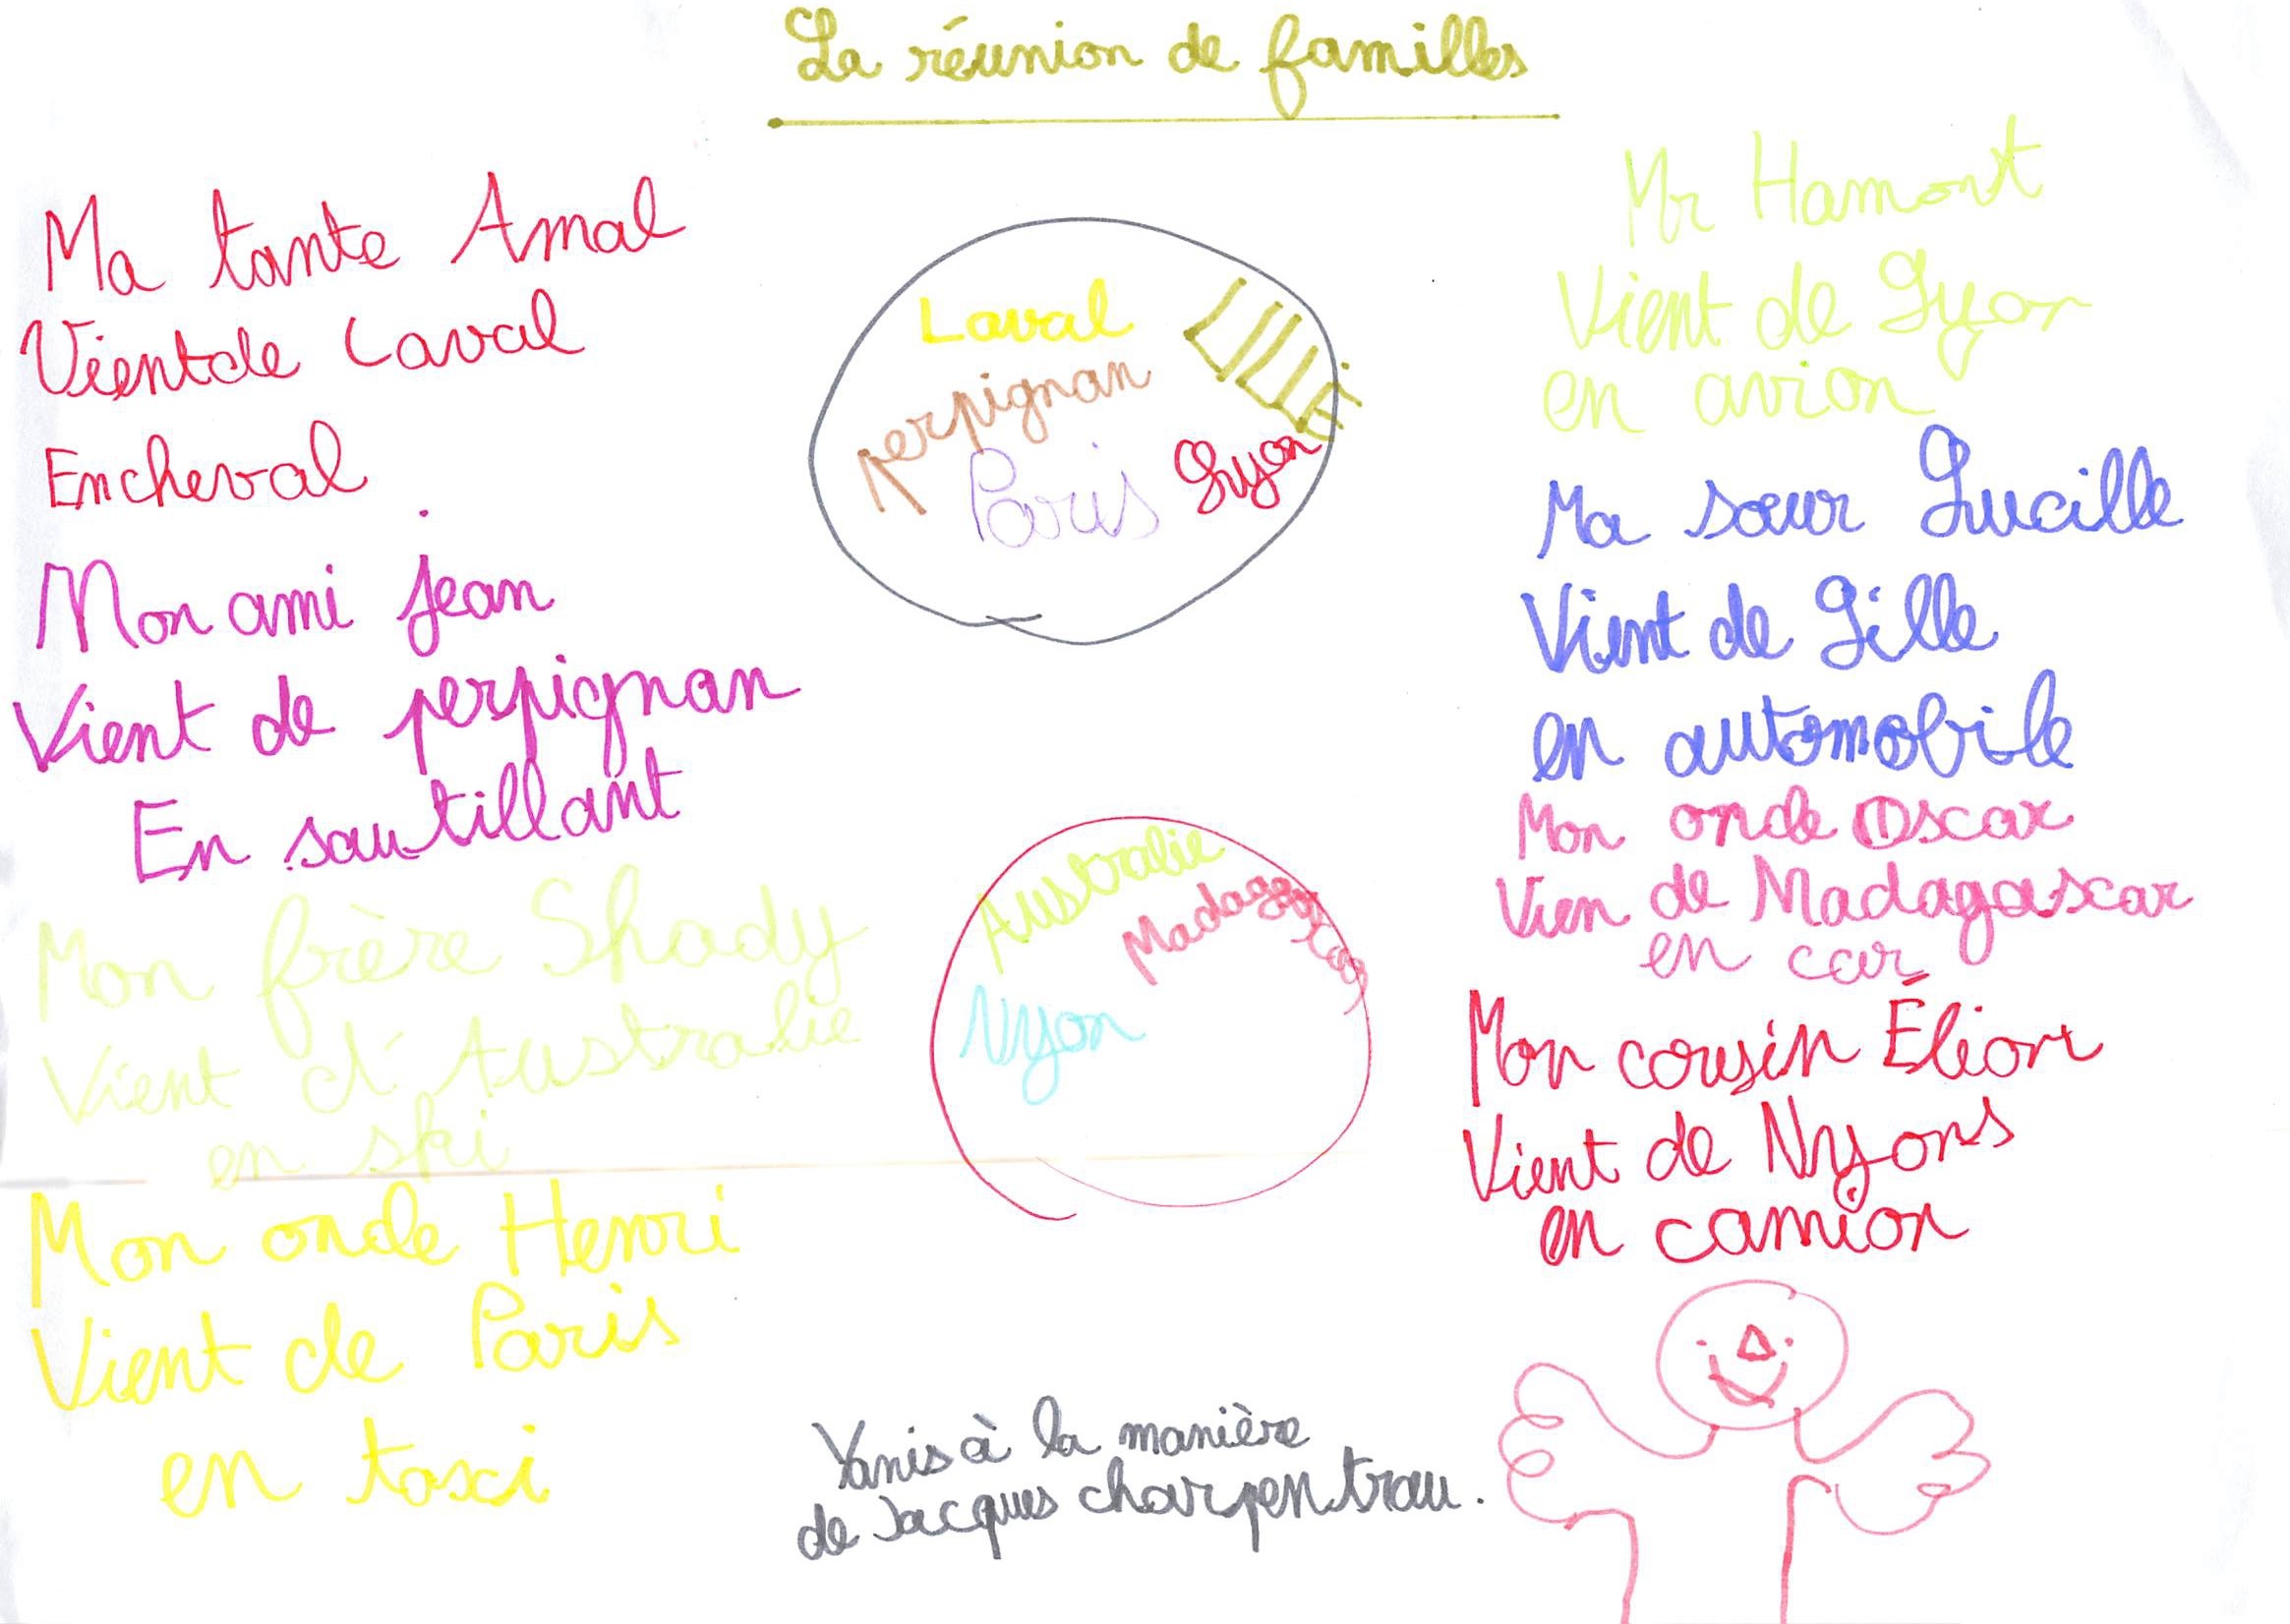 La réunion de familles
Ma tante Amal
Vient de Laval
En cheval
Mon ami jean
Vient de perpignan
En sautillant
Mon frère Shady
Vient d'Australie
en ski
Mon oncle Henri
Vient de Paris
en taxi
Laval
LILLE
perpignan
Paris
Lyon
Australie
Madagascar
Nyon
Yanis à la manière
de Jacques charpentrau.
Mr Hamont
Vient de Lyon
en avion
Ma sœur Lucille
Vient de Lille
en automobile
Mon oncle Oscar
Vien de Madagascar
en car
Mon cousin Élion
Vient de Nyons
en camion